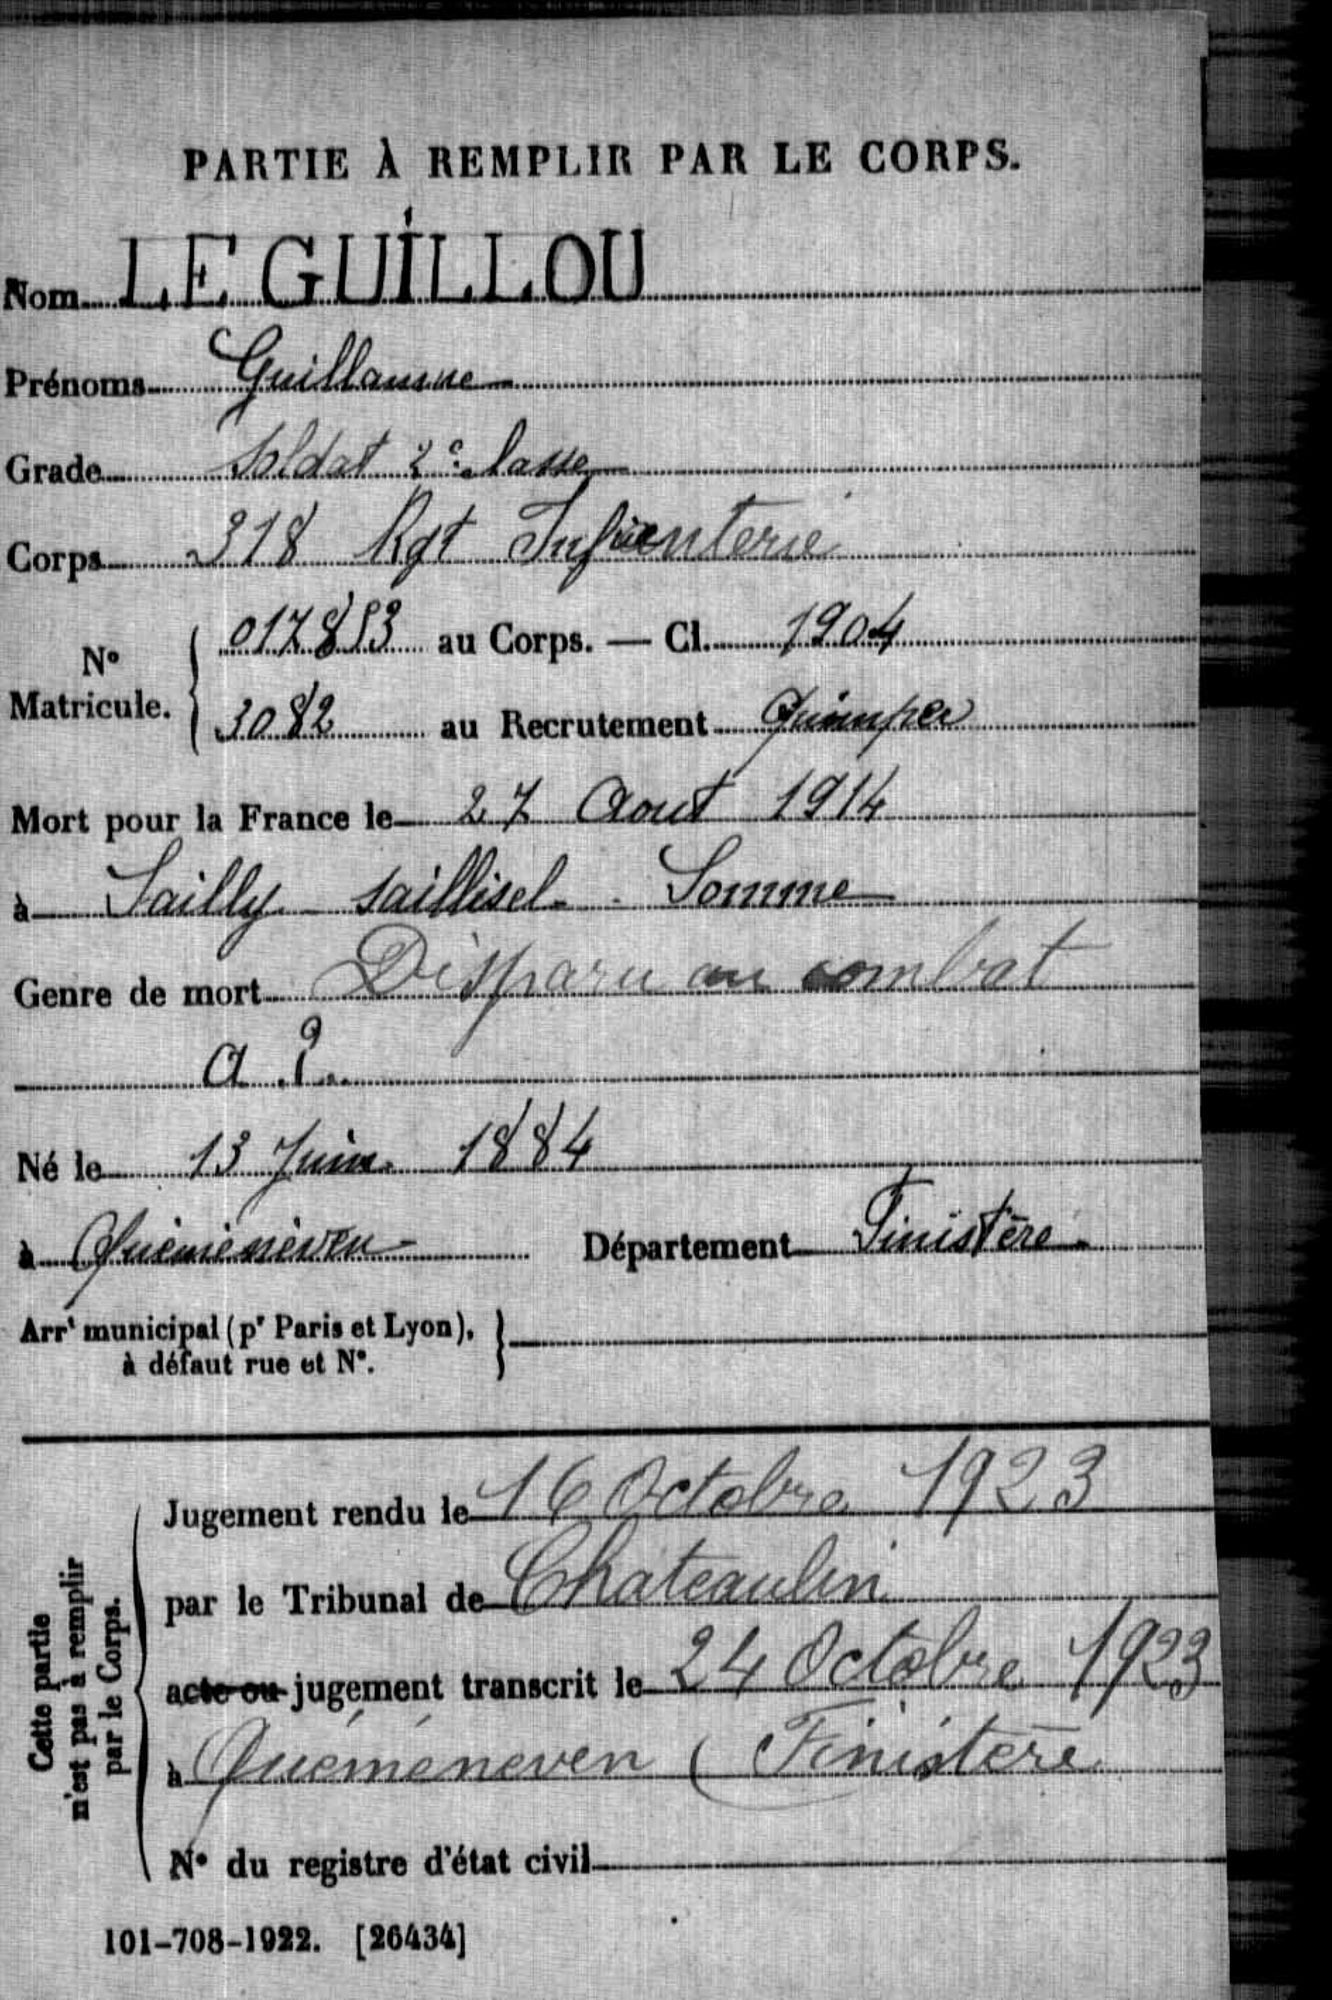 PARTIE À REMPLIR PAR LE CORPS.
Nom LE GUILLOU
Prénoms Guillaume
Grade Soldat 2e classe
Corps 318 Rgt Infanterie
017853 au Corps. — Cl. 1904
N° Matricule.
3082 au Recrutement Quimper
Mort pour la France le 27 Aout 1914
à Sailly-Saillisel - Somme
Genre de mort Disparu au combat
Né le 13 Juin 1884
à Quéménéven Département Finistère
Arrt municipal (pr Paris et Lyon),
à défaut rue et N°.
Cette partie
n'est pas à remplir
par le Corps.
Jugement rendu le 16 Octobre 1923
par le Tribunal de Chateaulin
acte ou jugement transcrit le 24 Octobre 1923
à Quéméneven (Finistère
N° du registre d'état civil
101-708-1922. [26434]